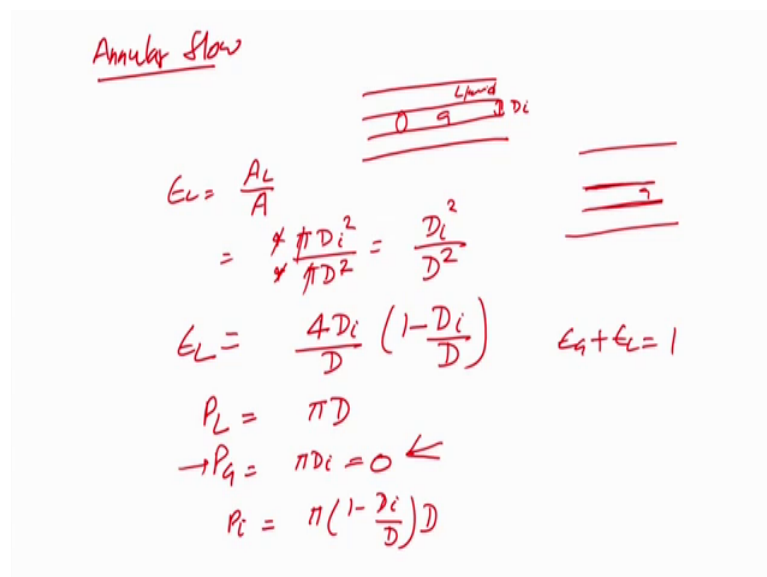 Annular flow
Liquid
G Di
G
ϵL = AL/A
= 4πDi²/4πD² = Di²/D²
ϵL = 4Di/D (1-Di/D) ϵG+ϵL=1
PL = πD
→PG = πDi = 0 ←
Pi = π(1-Di/D)D